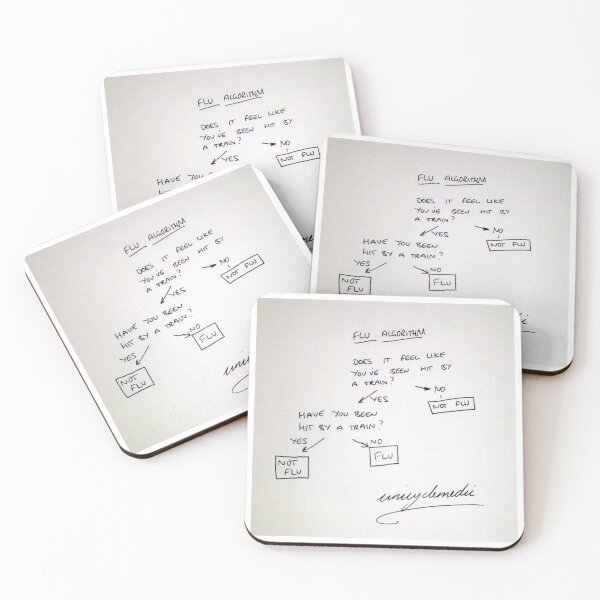 FLU ALGORITHM
DOES IT FEEL LIKE
YOU'VE BEEN HIT BY
A TRAIN?
NO
YES
NOT FLU
HAVE YOU
FLU ALGORITHM
DOES IT FEEL LIKE
YOU'VE BEEN HIT BY
A TRAIN?
NO
YES
NOT FLU
HAVE YOU BEEN
HIT BY A TRAIN?
YES
NO
NOT
FLU
FLU
FLU ALGORITHM
DOES IT FEEL LIKE
YOU'VE BEEN HIT BY
A TRAIN?
NO
YES
NOT FLU
HAVE YOU BEEN
HIT BY A TRAIN?
YES
NO
NOT
FLU
FLU
FLU ALGORITHM
DOES IT FEEL LIKE
YOU'VE BEEN HIT BY
A TRAIN?
NO
YES
NOT FLU
HAVE YOU BEEN
HIT BY A TRAIN?
YES
NO
NOT
FLU
FLU
unicyclemedic